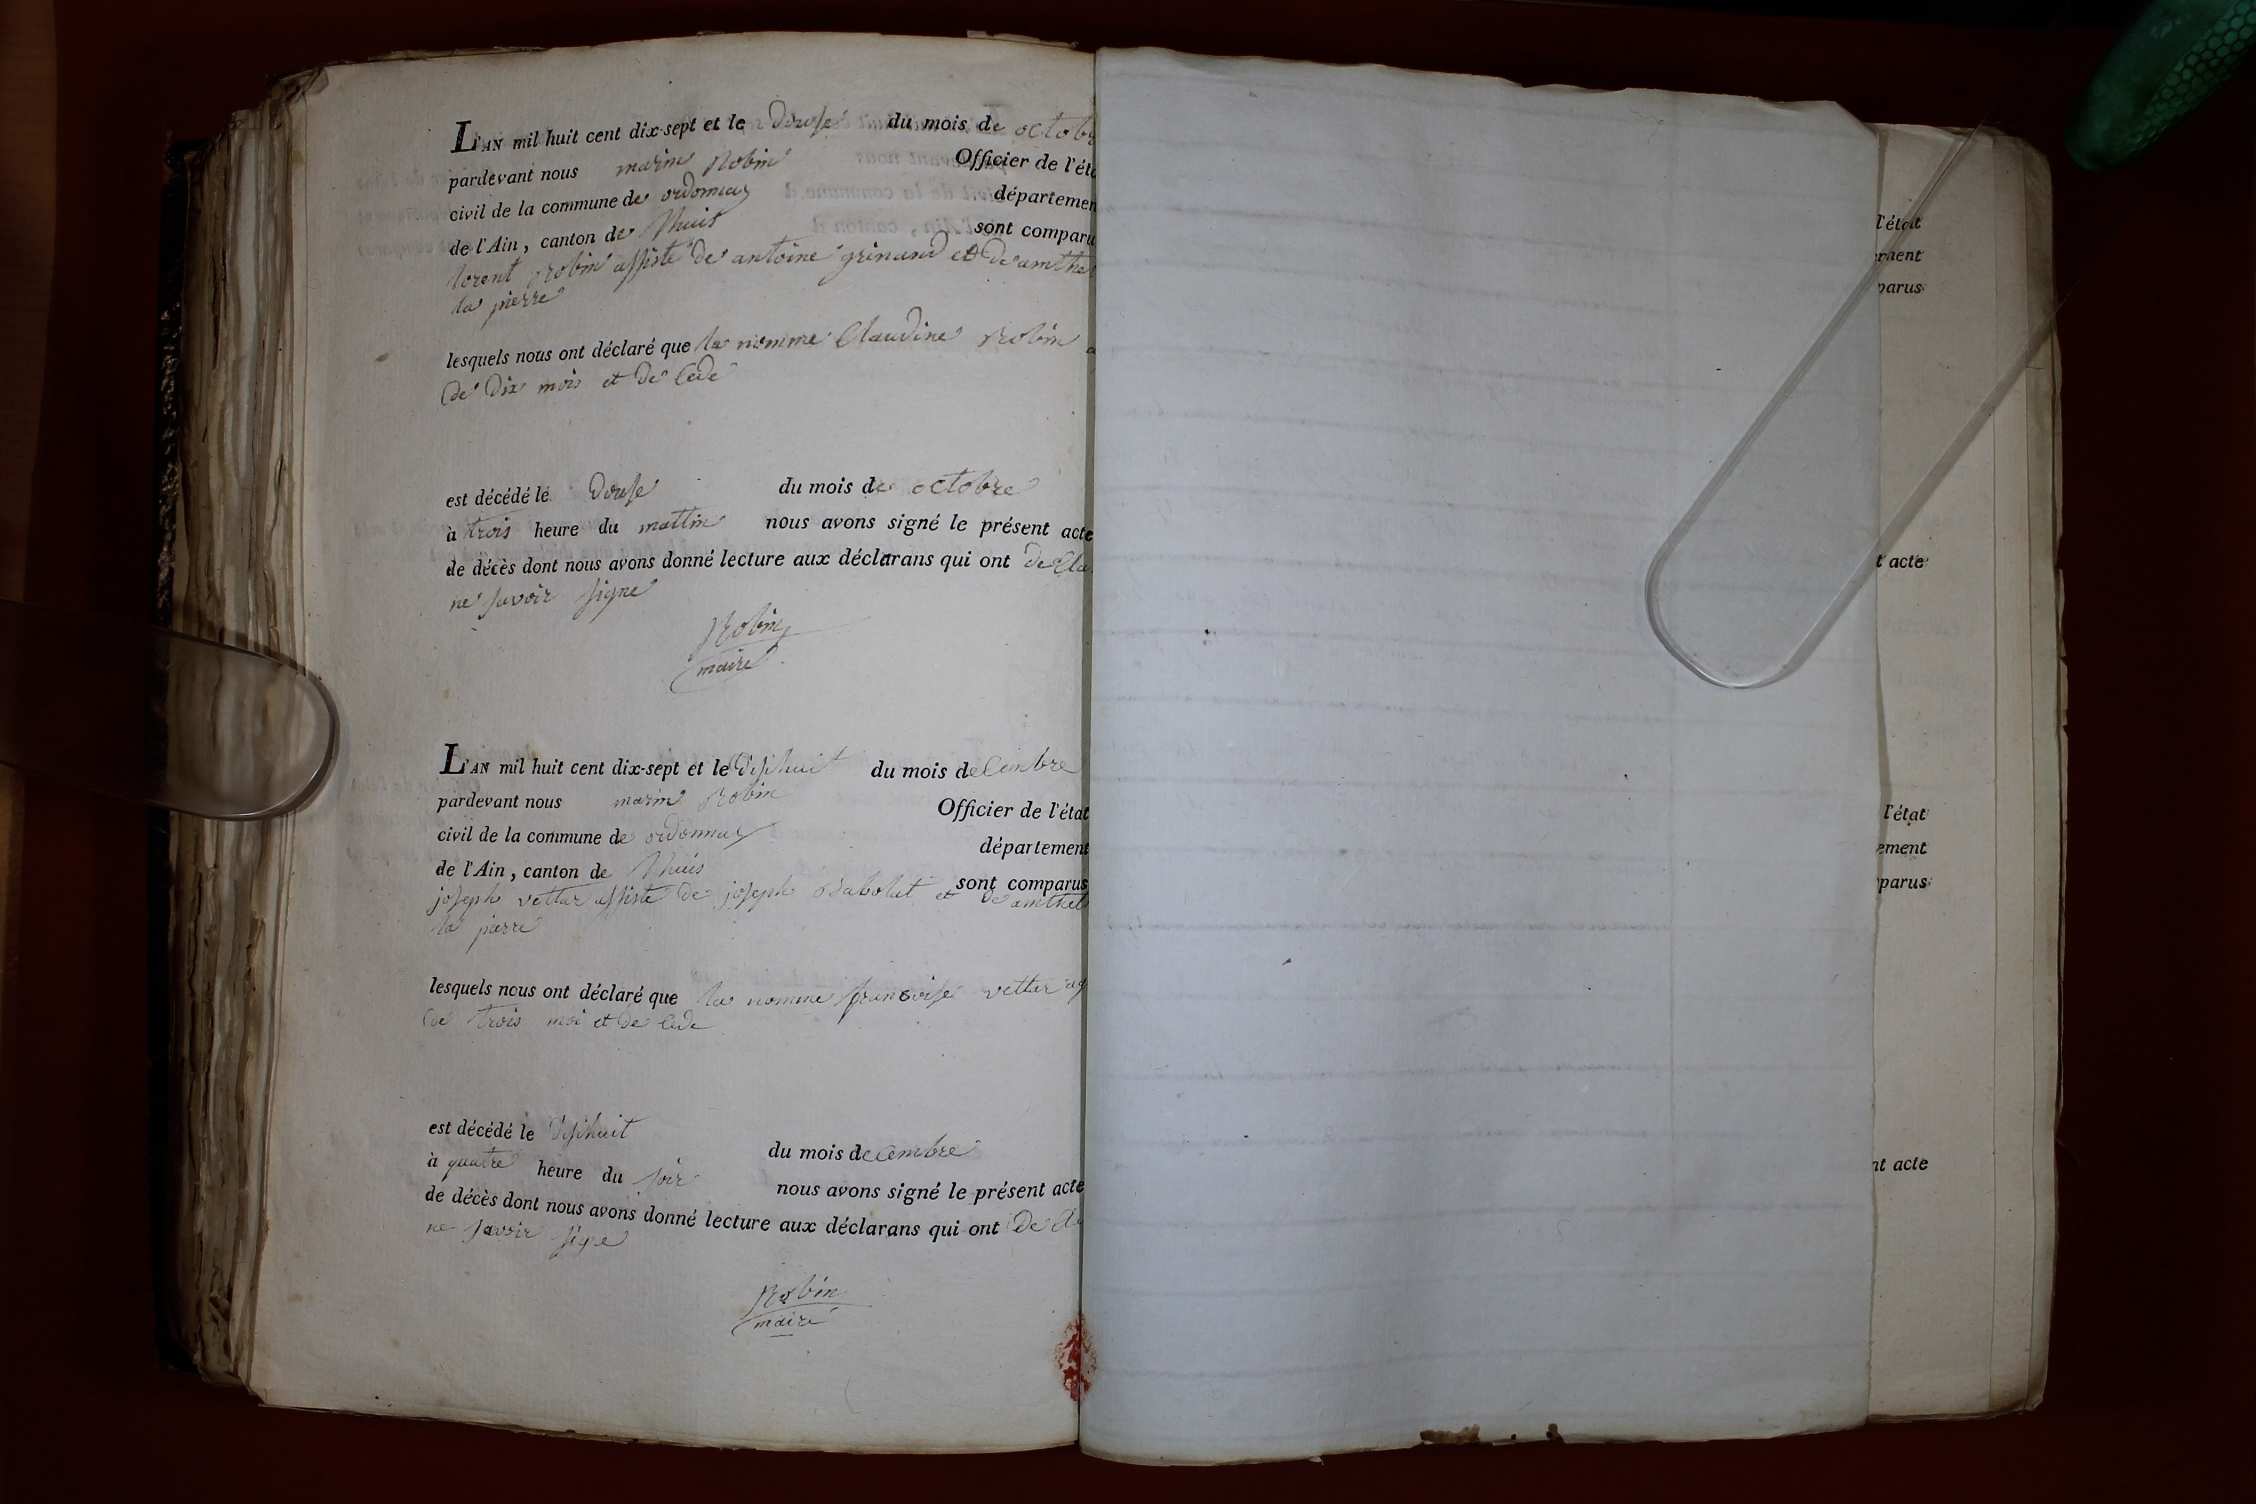 L'AN mil huit cent dix-sept et le douse du mois de octob
pardevant nous marin Robin Officier de l'éta
civil de la commune de ordonnas départemen
de l'Ain, canton de lhuis sont comparu
lorent Robin assisté de antoine grinand et de amthel
la pierre
lesquels nous ont déclaré que la nomme Claudine Robin a
de dix mois et de cede
est décédé le douse du mois de octobre
à trois heure du mattin nous avons signé le présent acte
de décès dont nous avons donné lecture aux déclarans qui ont de Cla
ne savoir signe
Robin
maire
L'AN mil huit cent dix-sept et le disihuit du mois decembre
pardevant nous marin Robin Officier de l'état
civil de la commune de ordonnas département
de l'Ain, canton de lhuis sont comparus
joseph vettar assiste de joseph et de amthel
la pierre
lesquels nous ont déclaré que la nomme francoise vettar ag
de trois moi et de cede
est décédé le disihuit du mois decembre
à quatre heure du soir nous avons signé le présent acte
de décès dont nous avons donné lecture aux déclarans qui ont de Cla
ne savoir signe
Robin
maire
l'état
ement
parus
t acte
l'état
ement
parus
nt acte